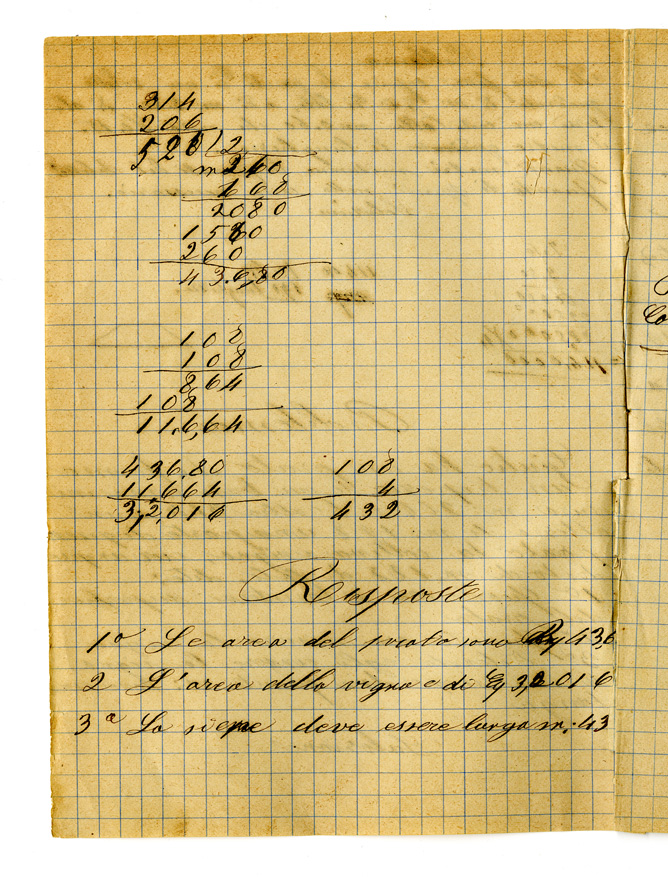 314
206
520 | 2
m 260
168
2080
1560
260
43.6,80
108
108
864
108
11.6,64
436,80
11664
3,2,016
108
4
432
Risposte
1ª Le area del prato sono 43,6
2 L'area della vigna e di Eq 3,2016
3ª La siepe deve essere lunga m. 43
Co